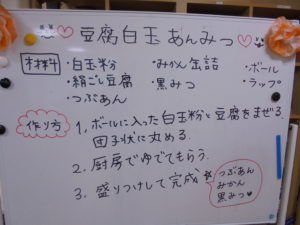 豆腐白玉あんみつ
材料 ・白玉粉 ・みかん缶詰 ・ボール
・絹ごし豆腐 ・黒みつ ・ラップ
・つぶあん
作り方 1, ボールに入った白玉粉と豆腐をまぜる.
団子状に丸める.
2. 厨房でゆでてもらう.
3. 盛りつけして完成
つぶあん
みかん
黒みつ